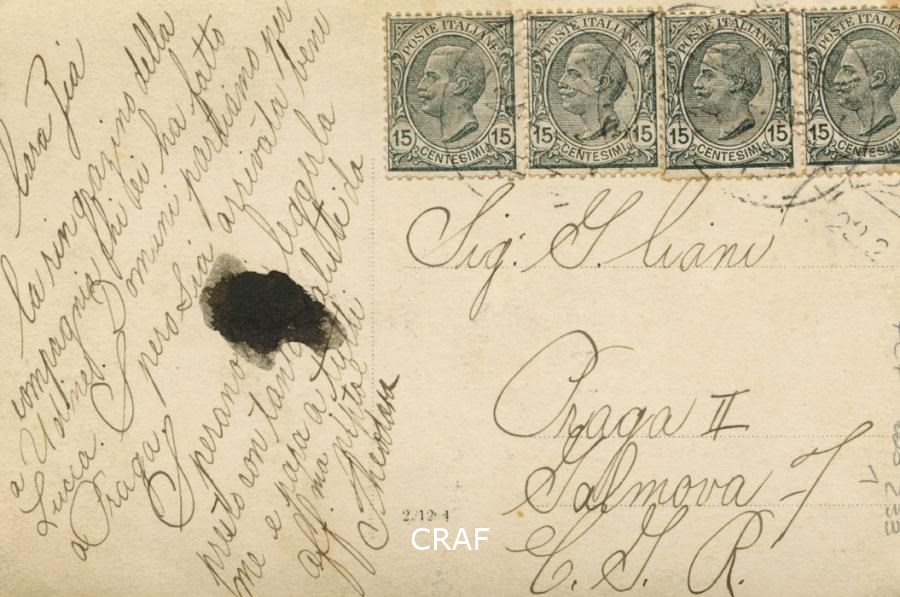 Cara Zia
La ringrazino della
compagnia chi lei ha fatto
a Udine. Domani partisimo per
Lucca. Spero sia arrivata bene
a Praga,
Sperano leggerla
presto con tanti saluti da
me e papa a tutti.
aff.ma nipote
Theodora
POSTE ITALIANE
15 CENTESIMI 15
POSTE ITALIANE
15 CENTESIMI 15
POSTE ITALIANE
15 CENTESIMI 15
POSTE ITALIANE
15 CENTESIMI
Sig: G. Liani
Praga II
Salmova 7
C. S. R.
CRAF